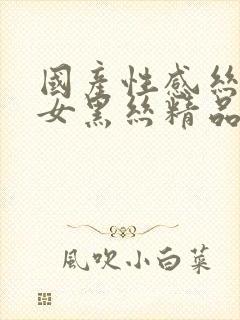 國產性感絲
女黑絲精品
風吹小白菜